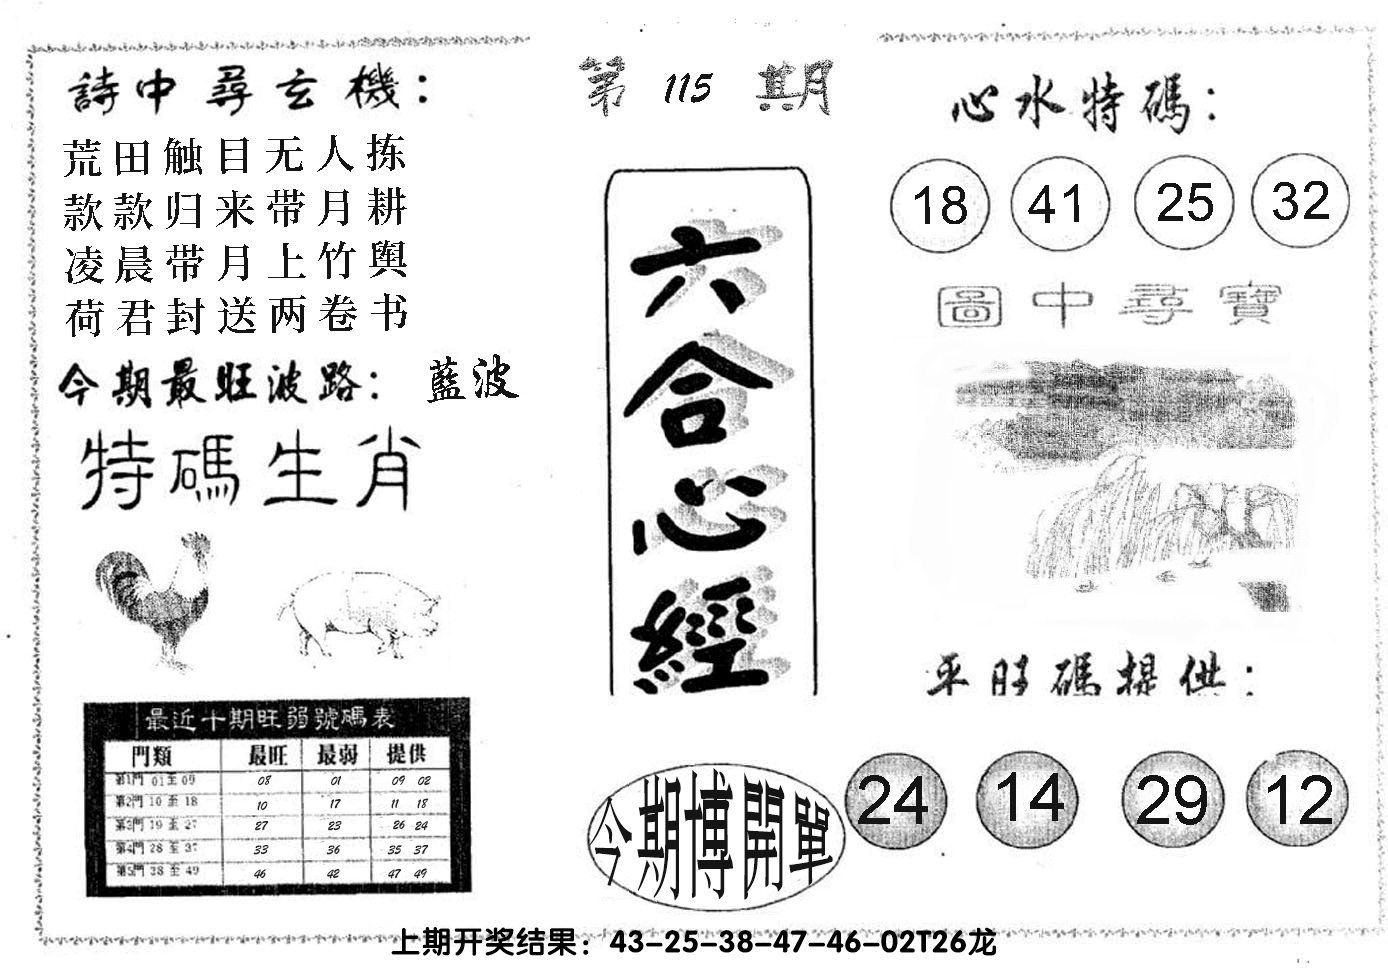 詩中尋玄機：
荒田触目无人拣
款款归来带月耕
凌晨带月上竹舆
荷君封送两卷书
今期最旺波路： 藍波
特碼生肖
最近十期旺弱號碼表
門類 最旺 最弱 提供
第1門 01 至 09 08 01 09 02
第2門 10 至 18 10 17 11 18
第3門 19 至 27 27 23 26 24
第4門 28 至 37 33 36 35 37
第5門 38 至 49 46 42 47 49
第 115 期
六合心經
今期博開單
心水特碼：
18 41 25 32
圖中尋寶
平旺碼提供：
24 14 29 12
上期开奖结果：43-25-38-47-46-02T26龙